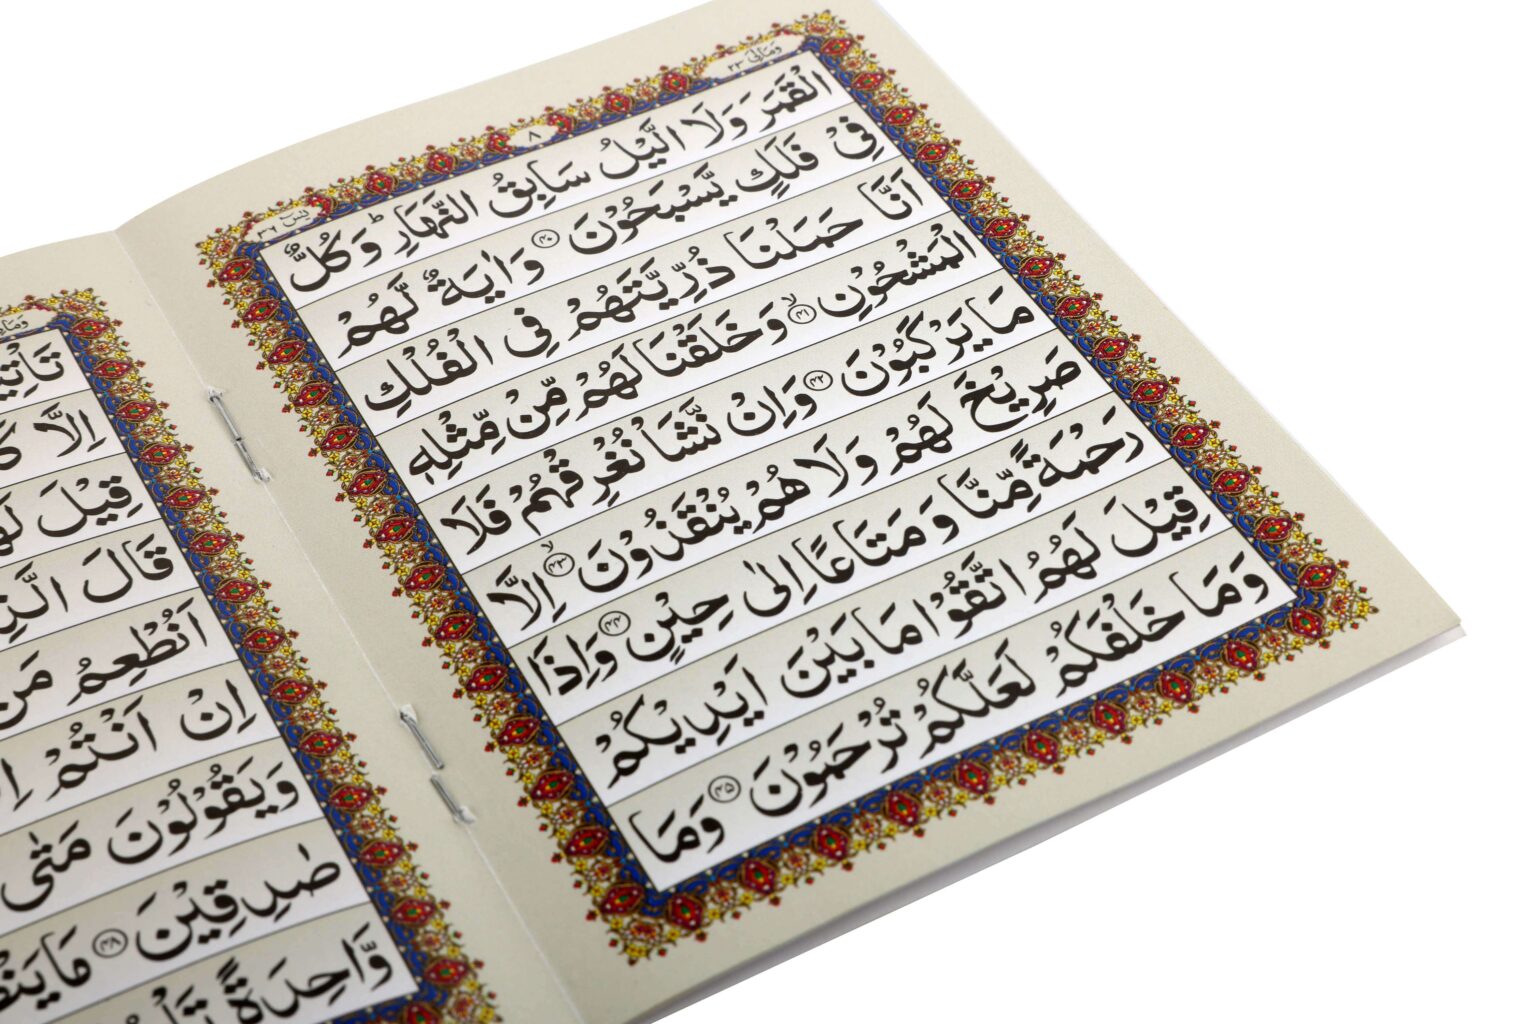 وَمَالِیَ ٢٣
٨
يٰسٓ ٣٦
الْقَمَرَ وَلَا الَّيْلُ سَابِقُ النَّهَارِ ؕ وَكُلٌّ
فِیْ فَلَكٍ يَّسْبَحُوْنَ ﴿۴۰﴾ وَاٰيَةٌ لَّهُمْ
اَنَّا حَمَلْنَا ذُرِّيَّتَهُمْ فِی الْفُلْكِ
الْمَشْحُوْنِ ﴿۴۱﴾ۙ وَخَلَقْنَا لَهُمْ مِّنْ مِّثْلِهٖ
مَا يَرْكَبُوْنَ ﴿۴۲﴾ وَاِنْ نَّشَاْ نُغْرِقْهُمْ فَلَا
صَرِيْخَ لَهُمْ وَلَا هُمْ يُنْقَذُوْنَ ﴿۴۳﴾ۙ اِلَّا
رَحْمَةً مِّنَّا وَمَتَاعًا اِلٰی حِيْنٍ ﴿۴۴﴾ وَاِذَا
قِيْلَ لَهُمُ اتَّقُوْا مَا بَيْنَ اَيْدِيْكُمْ
وَمَا خَلْفَكُمْ لَعَلَّكُمْ تُرْحَمُوْنَ ﴿۴۵﴾ وَمَا
قِيْلَ
قَالَ
اَنُطْعِمُ مَنْ
اِنْ اَنْتُمْ
وَيَقُوْلُوْنَ مَتٰی
صٰدِقِيْنَ ﴿۴۸﴾
وَّاحِدَةً